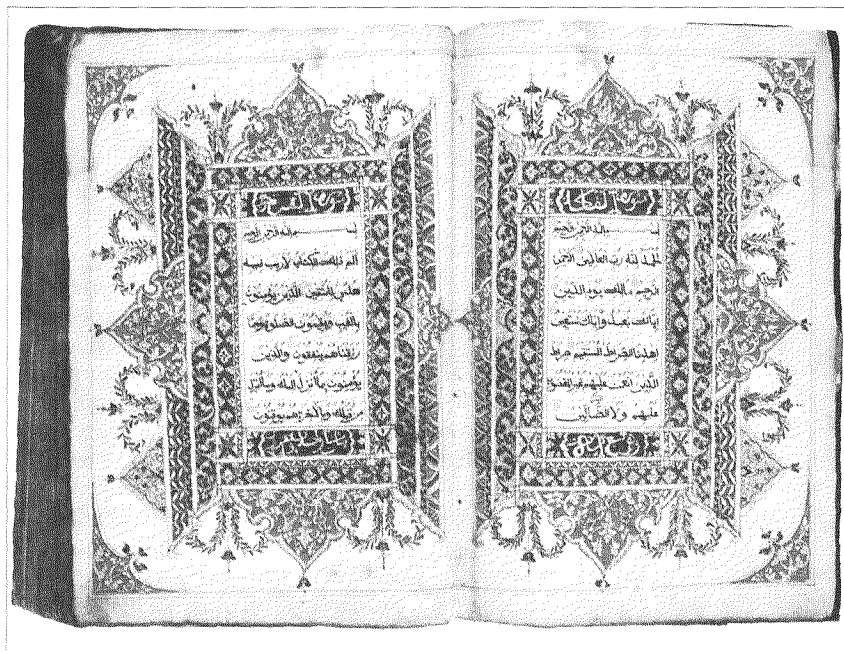 سورة
بسم الله الرحمن الرحيم
الحمد لله رب العالمين الرحمن
الرحيم مالك يوم الدين
إياك نعبد وإياك نستعين
اهدنا الصراط المستقيم صراط
الذين انعمت عليهم غير المغضوب
عليهم ولا الضالين
سورة البقرة
بسم الله الرحمن الرحيم
الم ذلك الكتاب لا ريب فيه
هدى للمتقين الذين يؤمنون
بالغيب ويقيمون الصلوة ومما
رزقناهم ينفقون والذين
يؤمنون بما أنزل إليك وما أنزل
من قبلك وبالآخرة هم يوقنون